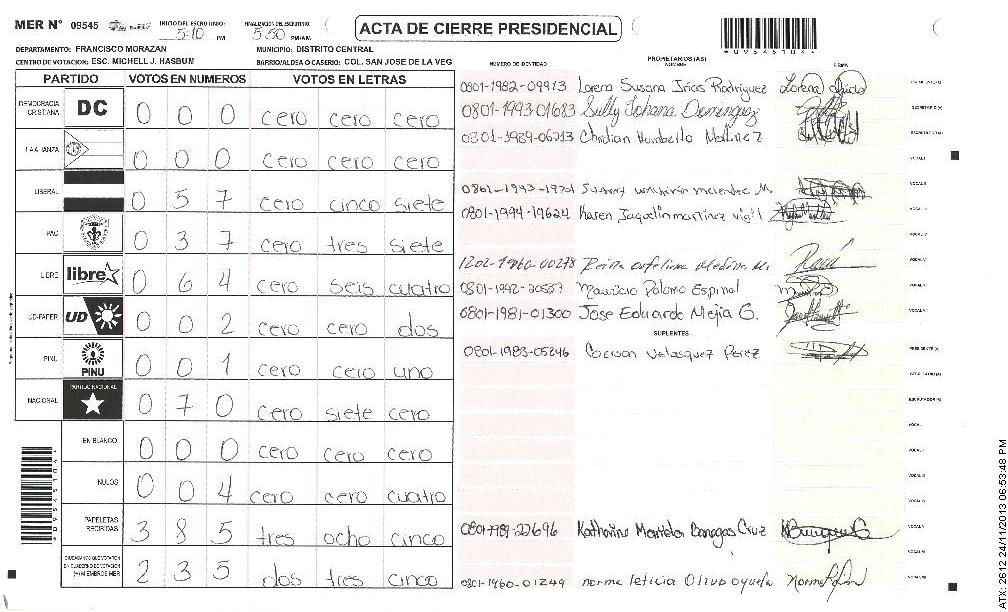 MER N° 09545 INICIO DEL ESCRUTINIO: 5:10 PM FINALIZACION DEL ESCRUTINIO 5:50 PM/AM
ACTA DE CIERRE PRESIDENCIAL
DEPARTAMENTO: FRANCISCO MORAZAN MUNICIPIO: DISTRITO CENTRAL
CENTRO DE VOTACION: ESC. MICHELL J. HASBUM BARRIO/ALDEA O CASERIO: COL. SAN JOSE DE LA VEG
PARTIDO VOTOS EN NUMEROS VOTOS EN LETRAS
DEMOCRACIA CRISTIANA DC 0 0 0 cero cero cero
LA ALIANZA 0 0 0 cero cero cero
LIBERAL 0 5 7 cero cinco siete
PAC 0 3 7 cero tres siete
LIBRE libre 0 6 4 cero seis cuatro
UD-FAPER UD 0 0 2 cero cero dos
PINU PINU 0 0 1 cero cero uno
NACIONAL PARTIDO NACIONAL 0 7 0 cero siete cero
EN BLANCO 0 0 0 cero cero cero
NULOS 0 0 4 cero cero cuatro
PAPELETAS RECIBIDAS 3 8 5 tres ocho cinco
CIUDADANOS QUE VOTARON EN CUADERNO DE VOTACION (+) MIEMBROS MER 2 3 5 dos tres cinco
NUMERO DE IDENTIDAD PROPIETARIOS (AS) NOMBRE FIRMA
0801-1982-09913 Lorena Susana Irias Rodriguez
0801-1993-01683 Sully Johana Dominguez
0801-1989-06213 Christian Humberto Martinez
Melendez M.
0801-1994-19624 Karen Jaquelin martinez vigil
1202-1960-00278 Medina M.
0801-1992-20587 Mauricio Palomo Espinal
0801-1981-01300 Jose Eduardo Mejia G.
SUPLENTES
0801-1983-05246 Gerson Velasquez Perez
0801-1989-22696 Katherine Banegas Cruz
0801-1960-01249 norma leticia
*09545104*
ATX 2612 24/11/2013 06:53:48 PM